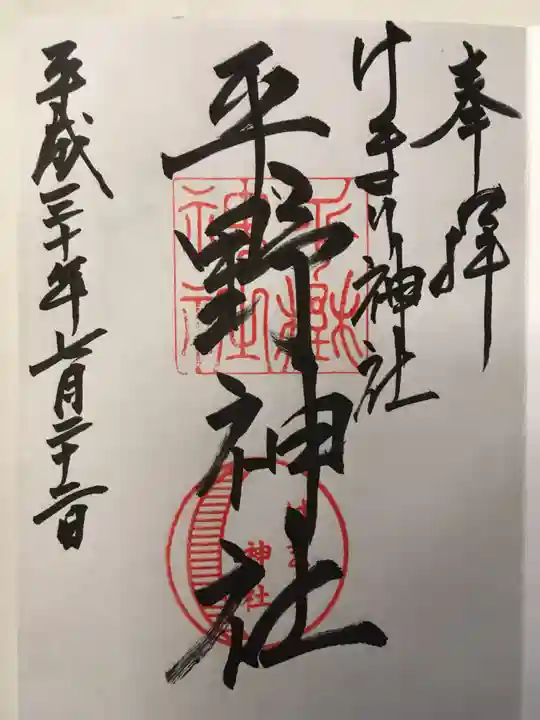 奉拝
けまり神社
平野神社
平成三十年七月二十二日
神社
神社